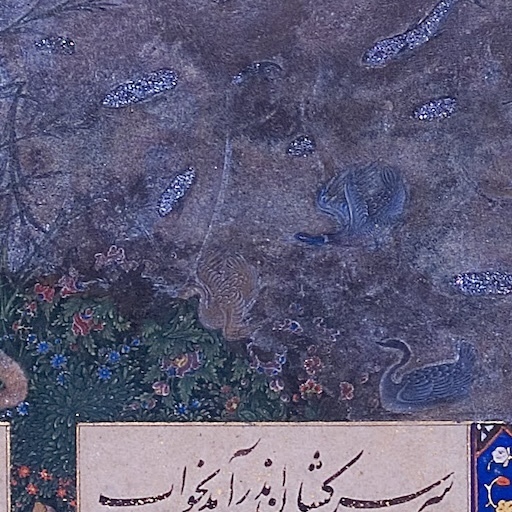 سر سرکشان اندر آمد بخواب